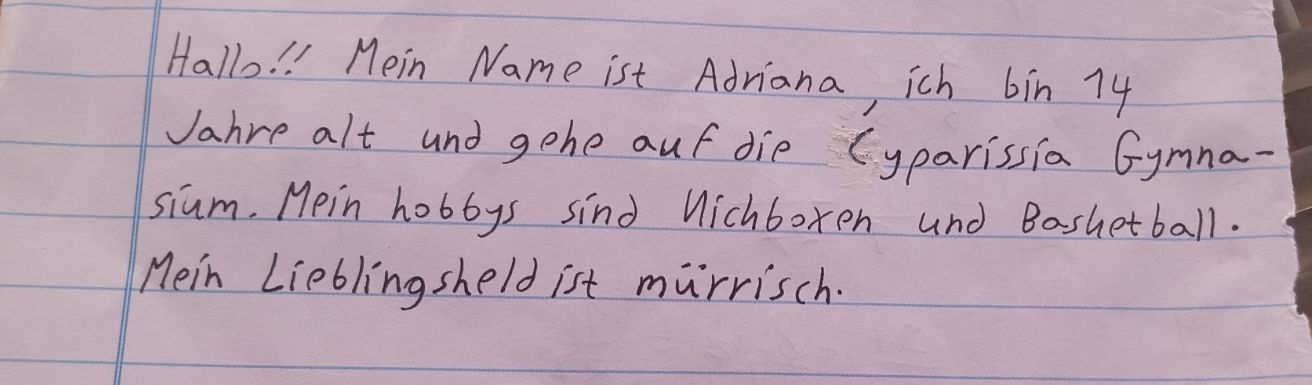 Hallo!! Mein Name ist Adriana, ich bin 14
Jahre alt und gehe auf die Cyparissia Gymna-
sium. Mein hobbys sind Kichboxen und Basketball.
Mein Lieblingsheld ist mürrisch.